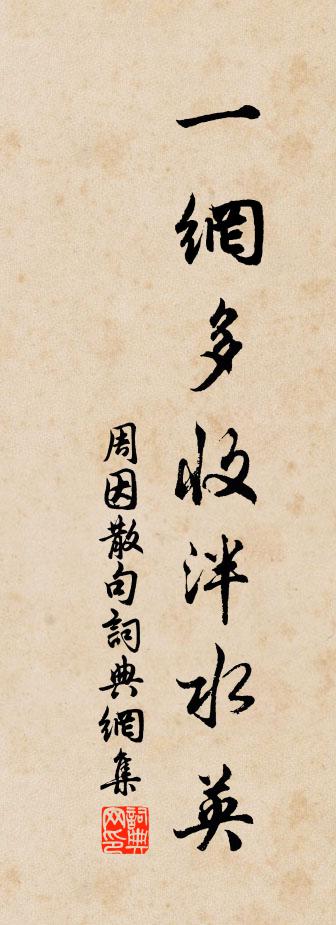 一網多收泮水英
周因散句詞典網集
詞典網印